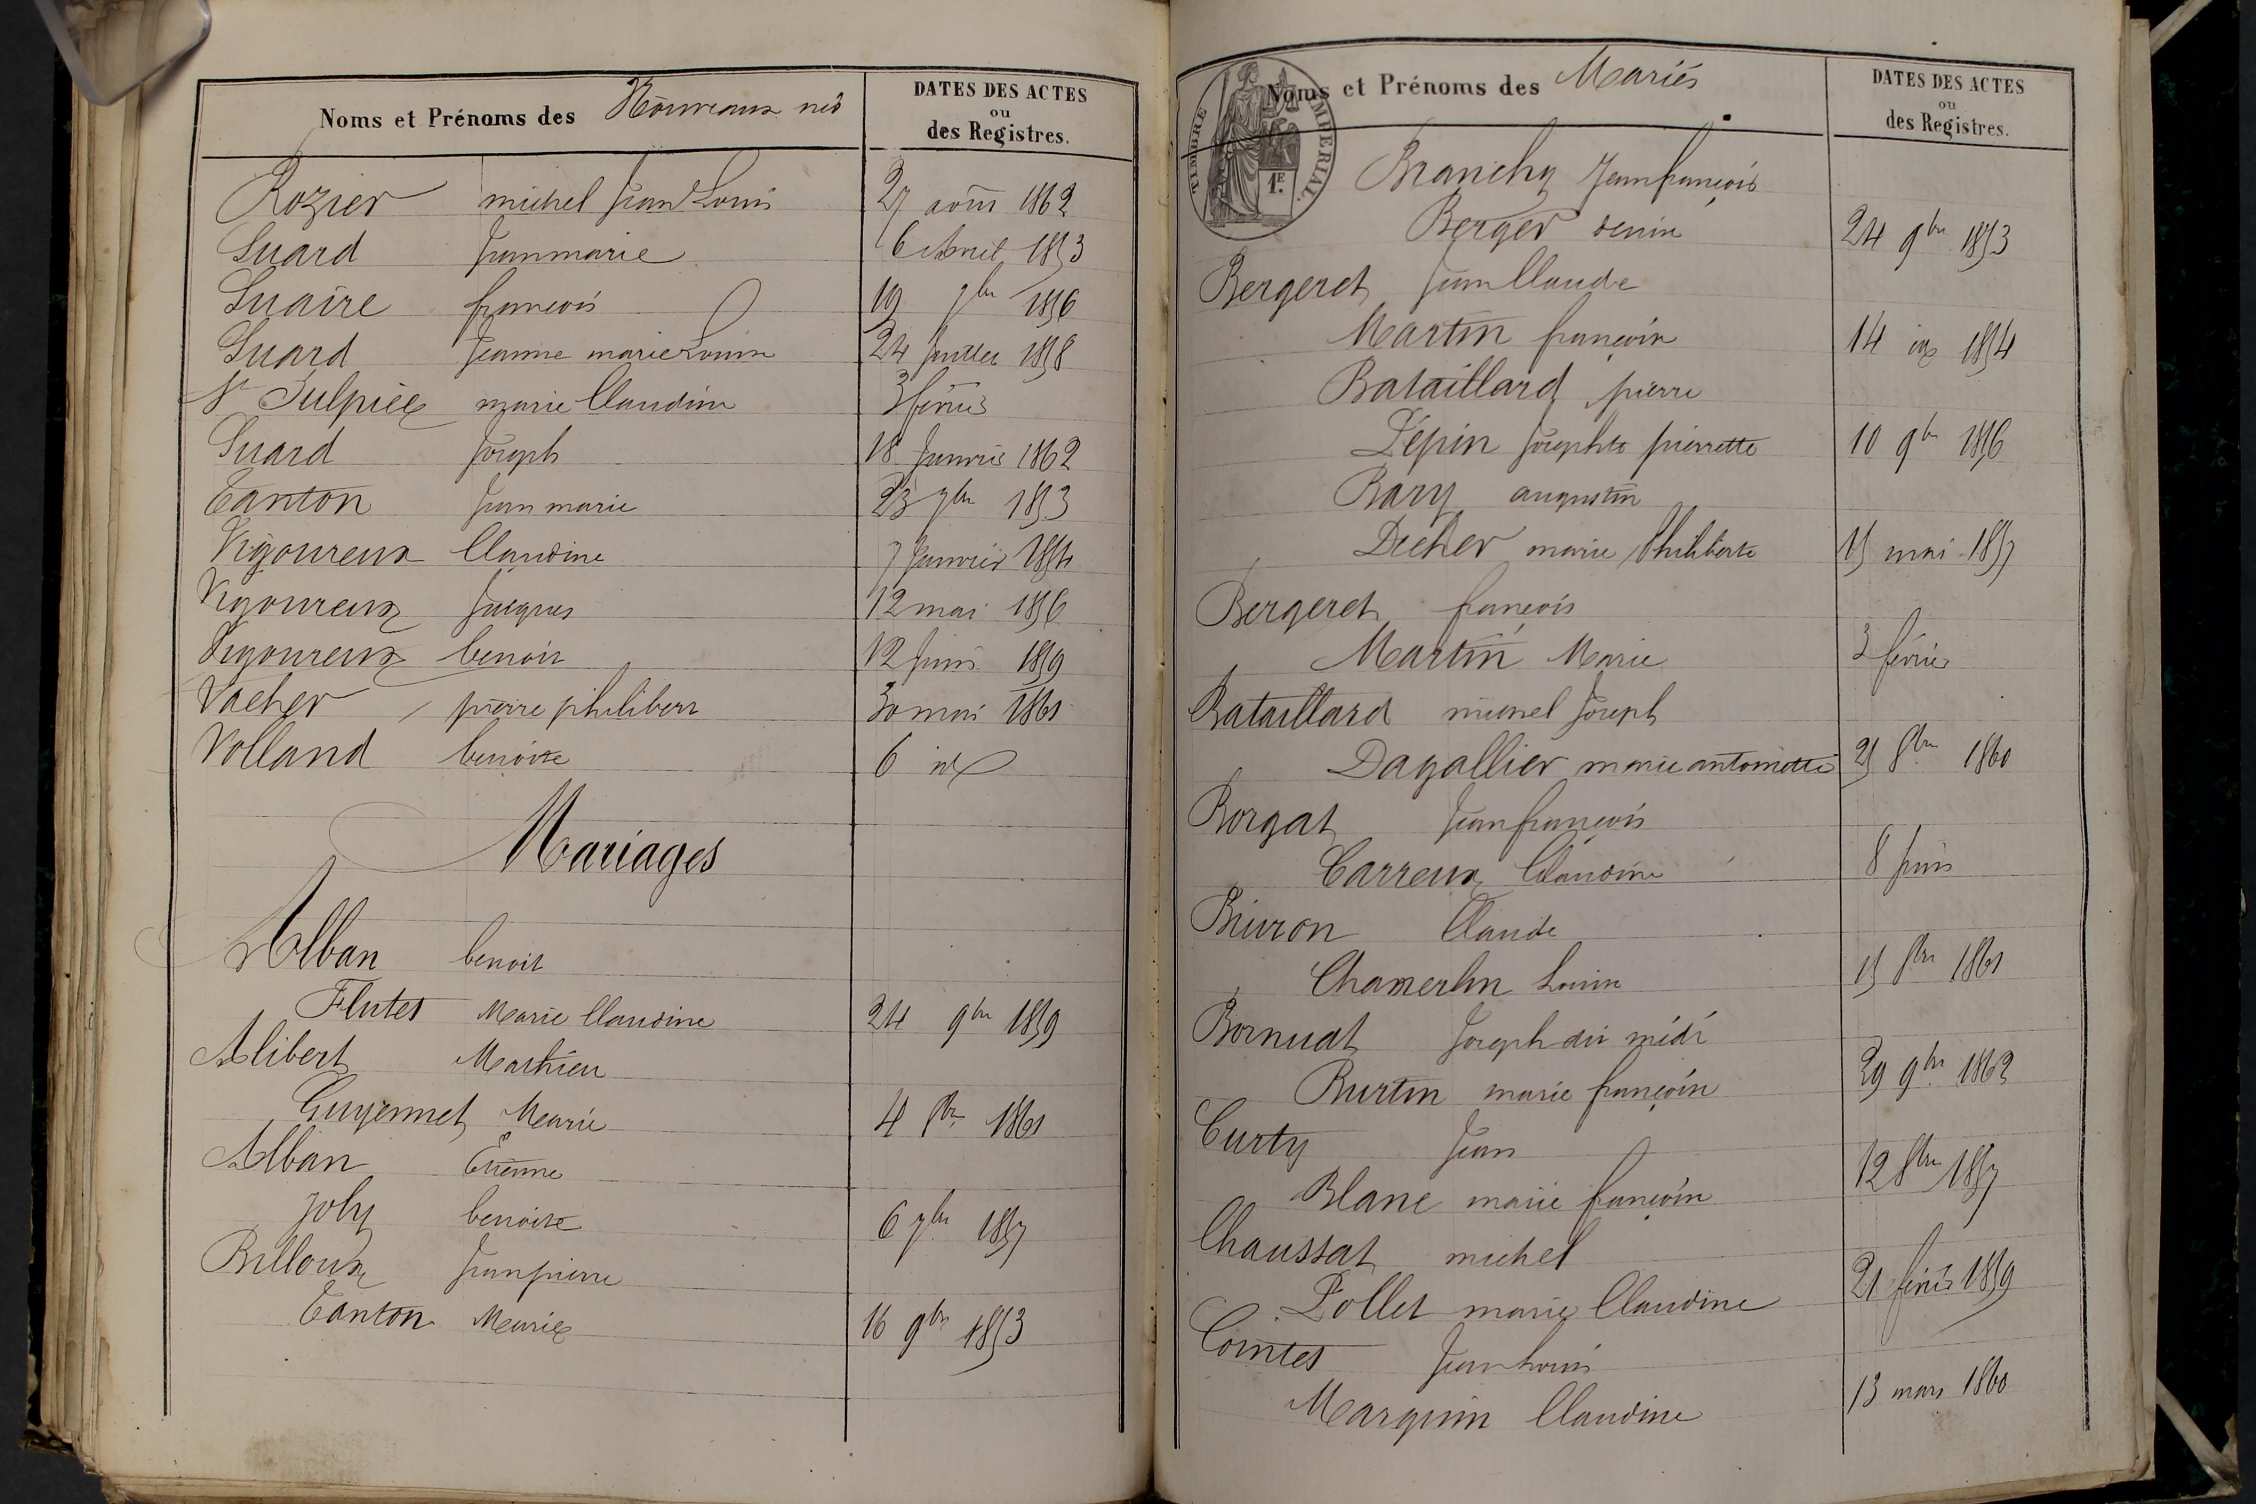 Noms et Prénoms des Nouveaux nés
DATES DES ACTES
ou
des Registres.
Rozier michel Jean Louis 27 août 1862
Suard Jean marie 6 Avril 1853
Suaire françois 19 7bre 1856
Suard Jeanne marie Louise 24 Juillet 1858
St Sulpice marie Claudine 3 février
Suard Joseph 18 Janvier 1862
Tanton Jean marie 23 7bre 1853
Vigoureux Claudine 7 Janvier 1854
Vigoureux Jacques 12 mai 1856
Vigoureux benoit 12 Juin 1859
Vacher pierre philibert 30 mai 1861
Volland benoite 6 id
Mariages
Alban benoit
Flutet Marie Claudine 24 9bre 1859
Alibert Mathieu
Guyennet Marie 4 8bre 1861
Alban Etienne
Joly benoite 6 7bre 1857
Billoux Jean pierre
Tanton Marie 16 9bre 1853
Noms et Prénoms des Mariés
DATES DES ACTES
ou
des Registres.
TIMBRE IMPERIAL.
1.E
Branchy Jean françois
Berger denise 24 9bre 1853
Bergeret Jean Claude
Martin françoise 14 id 1854
Bataillard pierre
Pépin Josephte pierrette 10 9bre 1856
Bary augustin
Decher marie Philiberte 15 mai 1857
Bergeret françois
Martin Marie 3 février
Bataillard michel Joseph
Dagallier marie antoinette 25 8bre 1860
Borgat Jean françois
Carreux Claudine 8 Juin
Buiron Claude
Chamerlin Louise 15 8bre 1861
Bornuat Joseph dit médi
Burtin marie françoise 29 9bre 1862
Curty Jean
Blanc marie françoise 12 8bre 1857
Chaussat michel
Pollet marie Claudine 21 février 1859
Comtet Jean Louis
Marguin Claudine 13 mars 1860